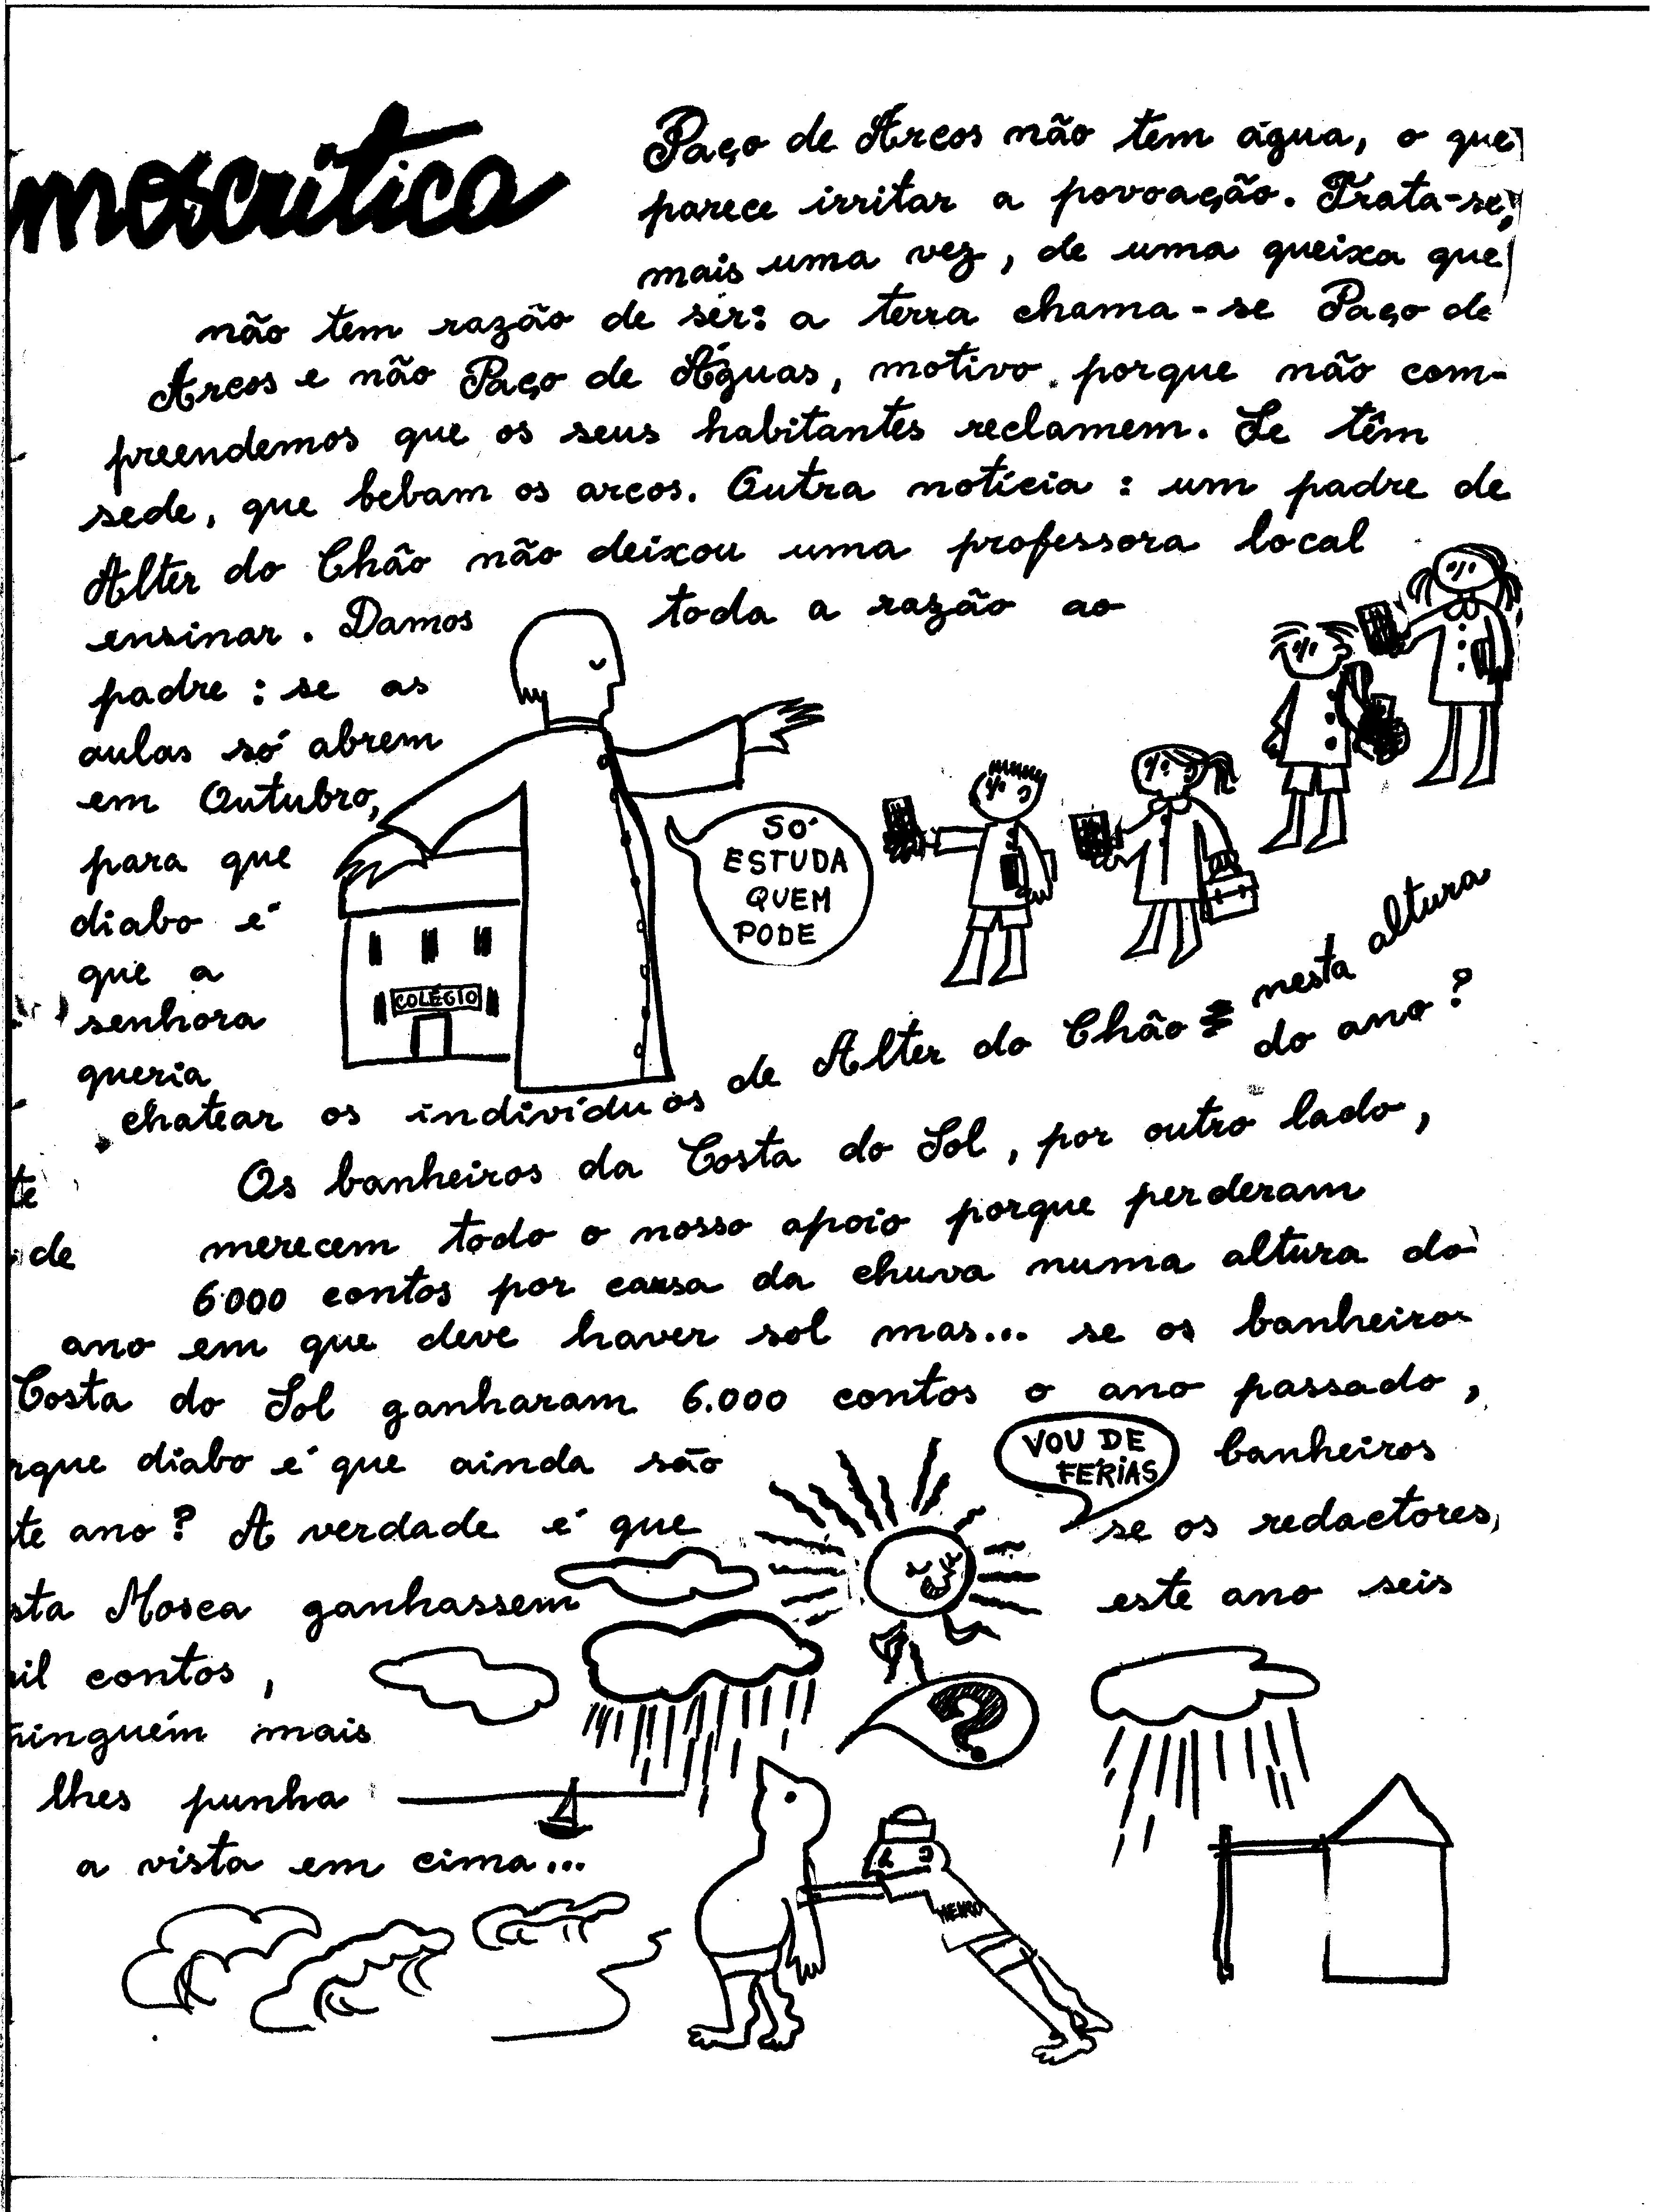 moscrítica
Paço de Arcos não tem água, o que
parece irritar a povoação. Trata-se,
mais uma vez, de uma queixa que
não tem razão de ser: a terra chama-se Paço de
Arcos e não Paço de Águas, motivo porque não com-
preendemos que os seus habitantes reclamem. Se têm
sede, que bebam os arcos. Outra notícia: um padre de
Alter do Chão não deixou uma professora local
ensinar. Damos toda a razão ao
padre: se as
aulas só abrem
em Outubro,
para que
diabo é
que a
senhora
queria
chatear os indivíduos de Alter do Chão nesta altura
do ano?
SÓ
ESTUDA
QUEM
PODE
COLÉGIO
Os banheiros da Costa do Sol, por outro lado,
te
de merecem todo o nosso apoio porque perderam
6.000 contos por causa da chuva numa altura do
ano em que deve haver sol mas... se os banheiros
Costa do Sol ganharam 6.000 contos o ano passado,
rque diabo é que ainda são banheiros
te ano? A verdade é que se os redactores,
sta Mosca ganhassem este ano seis
il contos,
ninguém mais
lhes punha
a vista em cima...
VOU DE
FÉRIAS
?